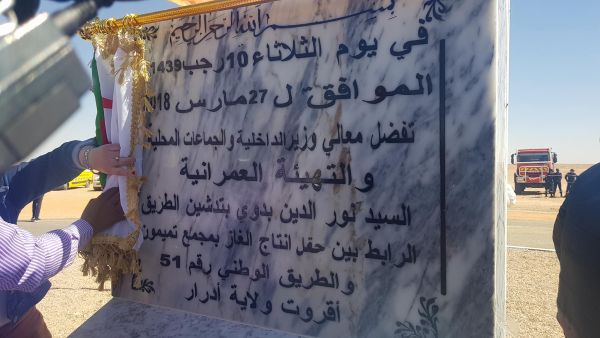 بسم الله الرحمن الرحيم
في يوم الثلاثاء 10 رجب 1439
الموافق ل 27 مارس 018
تفضل معالي وزير الداخلية والجماعات المحلية
والتهيئة العمرانية
السيد نور الدين بدوي بتدشين الطريق
الرابط بين حقل انتاج الغاز بمجمع تميمون
والطريق الوطني رقم 51
أقروت ولاية أدرار